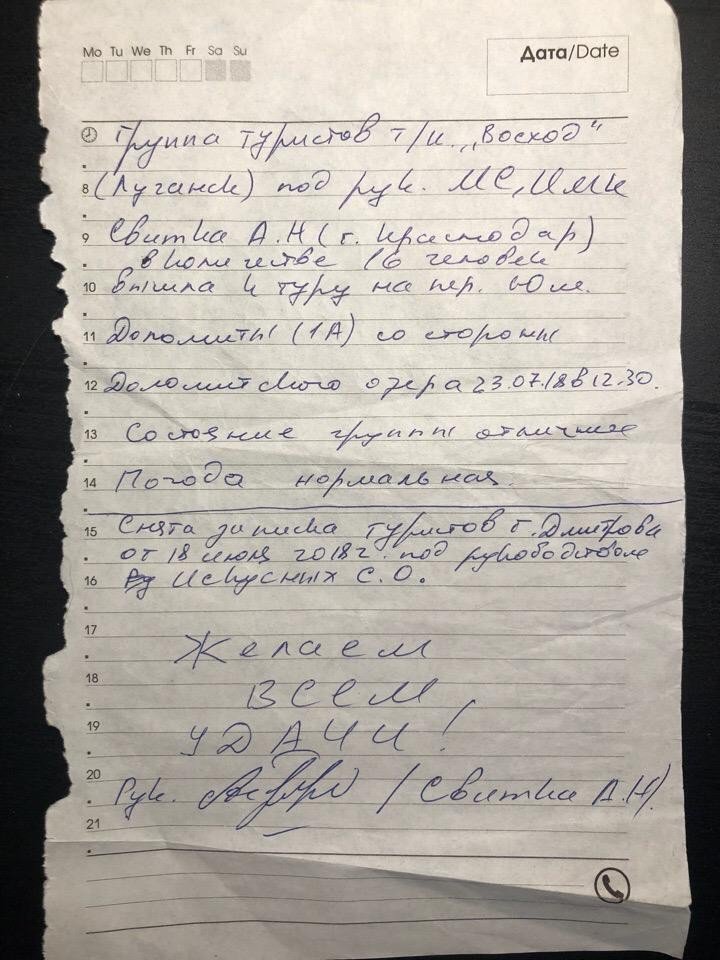 Mo Tu We Th Fr Sa Su
Дата/Date
Группа туристов т/к. „Восход"
8 (Луганск) под рук. МС,
9 Свитка А.Н (г. Краснодар)
в количестве 16 человек
10 вышла к туру на пер. Юж.
11 Доломиты (1А) со стороны
12 Доломитского озера 23.07.18 в 12.30.
13 Состояние группы отличное
14 Погода нормальная.
15 Снята записка туристов г. Дмитрова
от 18 июля 2018 г. под руководством
16 Искусных С.О.
17 Желаем
18 ВСЕМ
19 УДАЧИ!
20 Рук. / Свитка А.Н/.
21